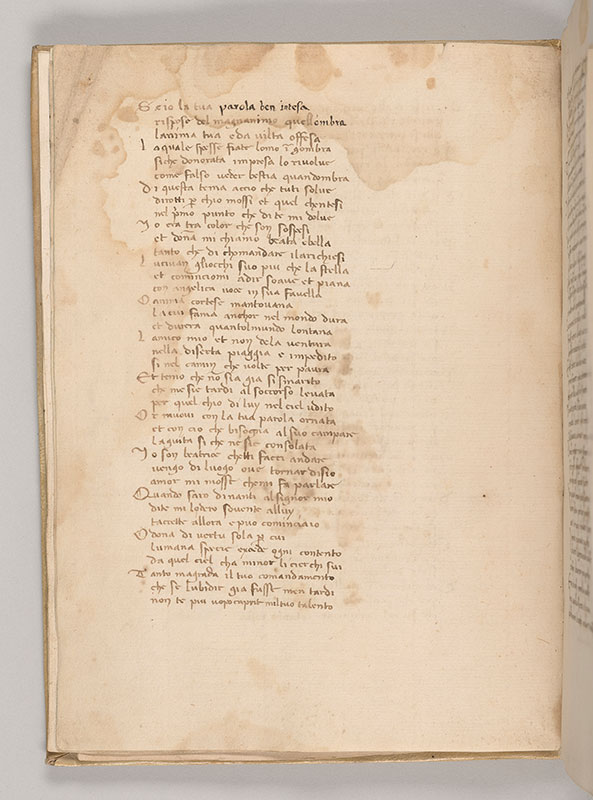 S eio la tua parola ben intesa
rispose del magnanimo quell ombra
lanima tua e da vilta offesa
L aquale spesse fiate lomo ingombra
siche donorata impresa lo rivolve
come falso veder bestia quandombra
D i questa tema accio che tuti solve
dirotti p chio mossi et quel chentesi
nel pimo punto che di te mi dolve
I o era tra color che son sospesi
et dona mi chiamo beata e bella
tanto che di chomandare ilarichiesi
L ucivan gliocchi suo piu che la stella
et cominciomi adir soave et piana
con angelica voce in sua favella
O anima cortese mantovana
la cui fama anchor nel mondo dura
et durera quantolmundo lontana
L amico mio et non dela ventura
nella diserta piaggia e impedito
si nel camin che volte per paura
Et temo che no sia gia si smarito
che me sie tardi al soccorso levata
per quel chio di luy nel ciel udito
Or movi con la tua parola ornata
et con cio che bisogna al suo campare
laiuta si che ne sie consolata
I o son beatrice chetti facci andare
vengo di luogo ove tornar disio
amor mi mosse chemi fa parlare
Quando saro dinanti alsignor mio
dite mi lodero sovente alluy
tacette allora e puo cominciaio
O dona di vertu sola p cui
lumana specie excede ogni contento
da quel ciel cha minor li cierchi sui
T anto magrada il tuo comandamento
che se lubidir gia fusse men tardi
non te piu uopo miltuo talento